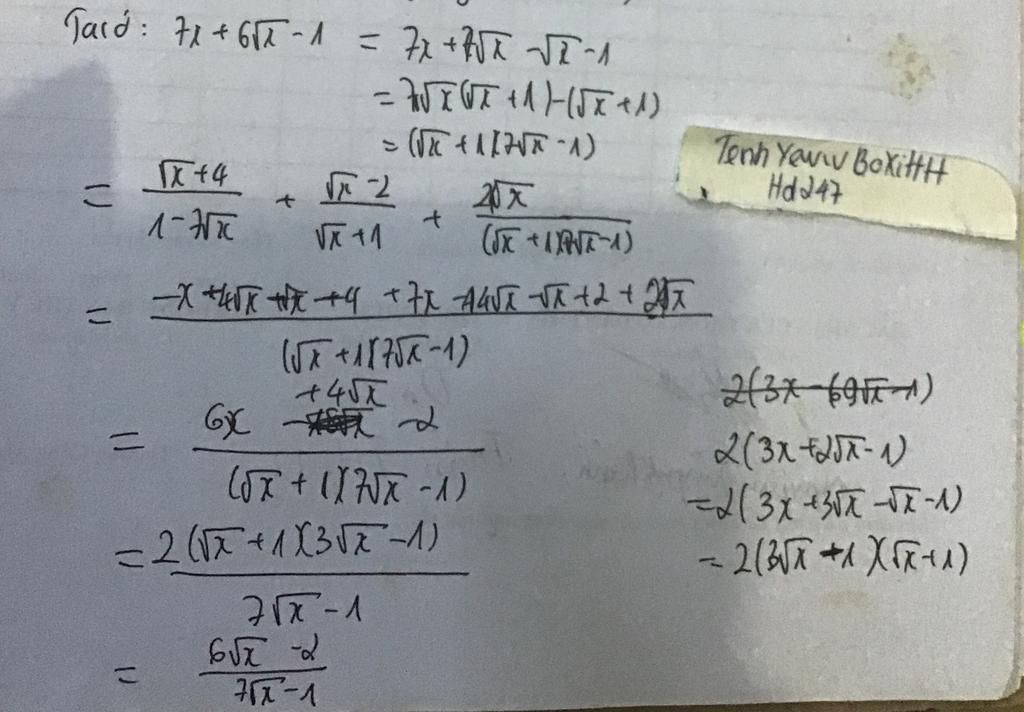 Ta có: 7x + 6√x - 1 = 7x + 7√x - √x - 1
= 7√x(√x + 1) - (√x + 1)
= (√x + 1)(7√x - 1)
Tenh Yeuw BoXiHH
Hd247
= (√x + 4)/(1 - 7√x) + (√x - 2)/(√x + 1) + 2√x/((√x + 1)(7√x - 1))
= (-x - 4√x - √x - 4 + 7x - 14√x - √x + 2 + 24√x)/((√x + 1)(7√x - 1))
= (6x + 4√x - 2)/((√x + 1)(7√x - 1))
= 2(√x + 1)(3√x - 1)/(7√x - 1)
= (6√x - 2)/(7√x - 1)
2(3x + 2√x - 1)
= 2(3x + 3√x - √x - 1)
= 2(3√x - 1)(√x + 1)